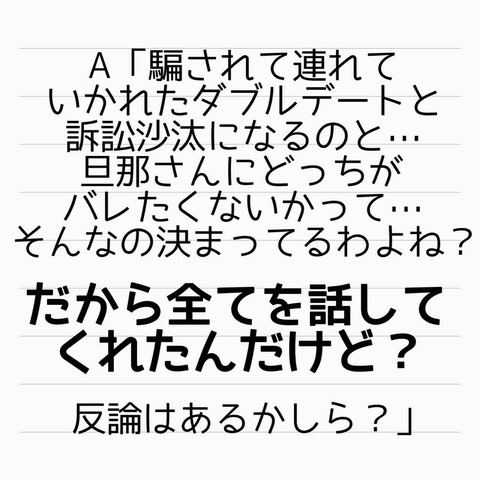 A「騙されて連れて
いかれたダブルデートと
訴訟沙汰になるのと…
旦那さんにどっちが
バレたくないかって…
そんなの決まってるわよね？
だから全てを話して
くれたんだけど？
反論はあるかしら？」